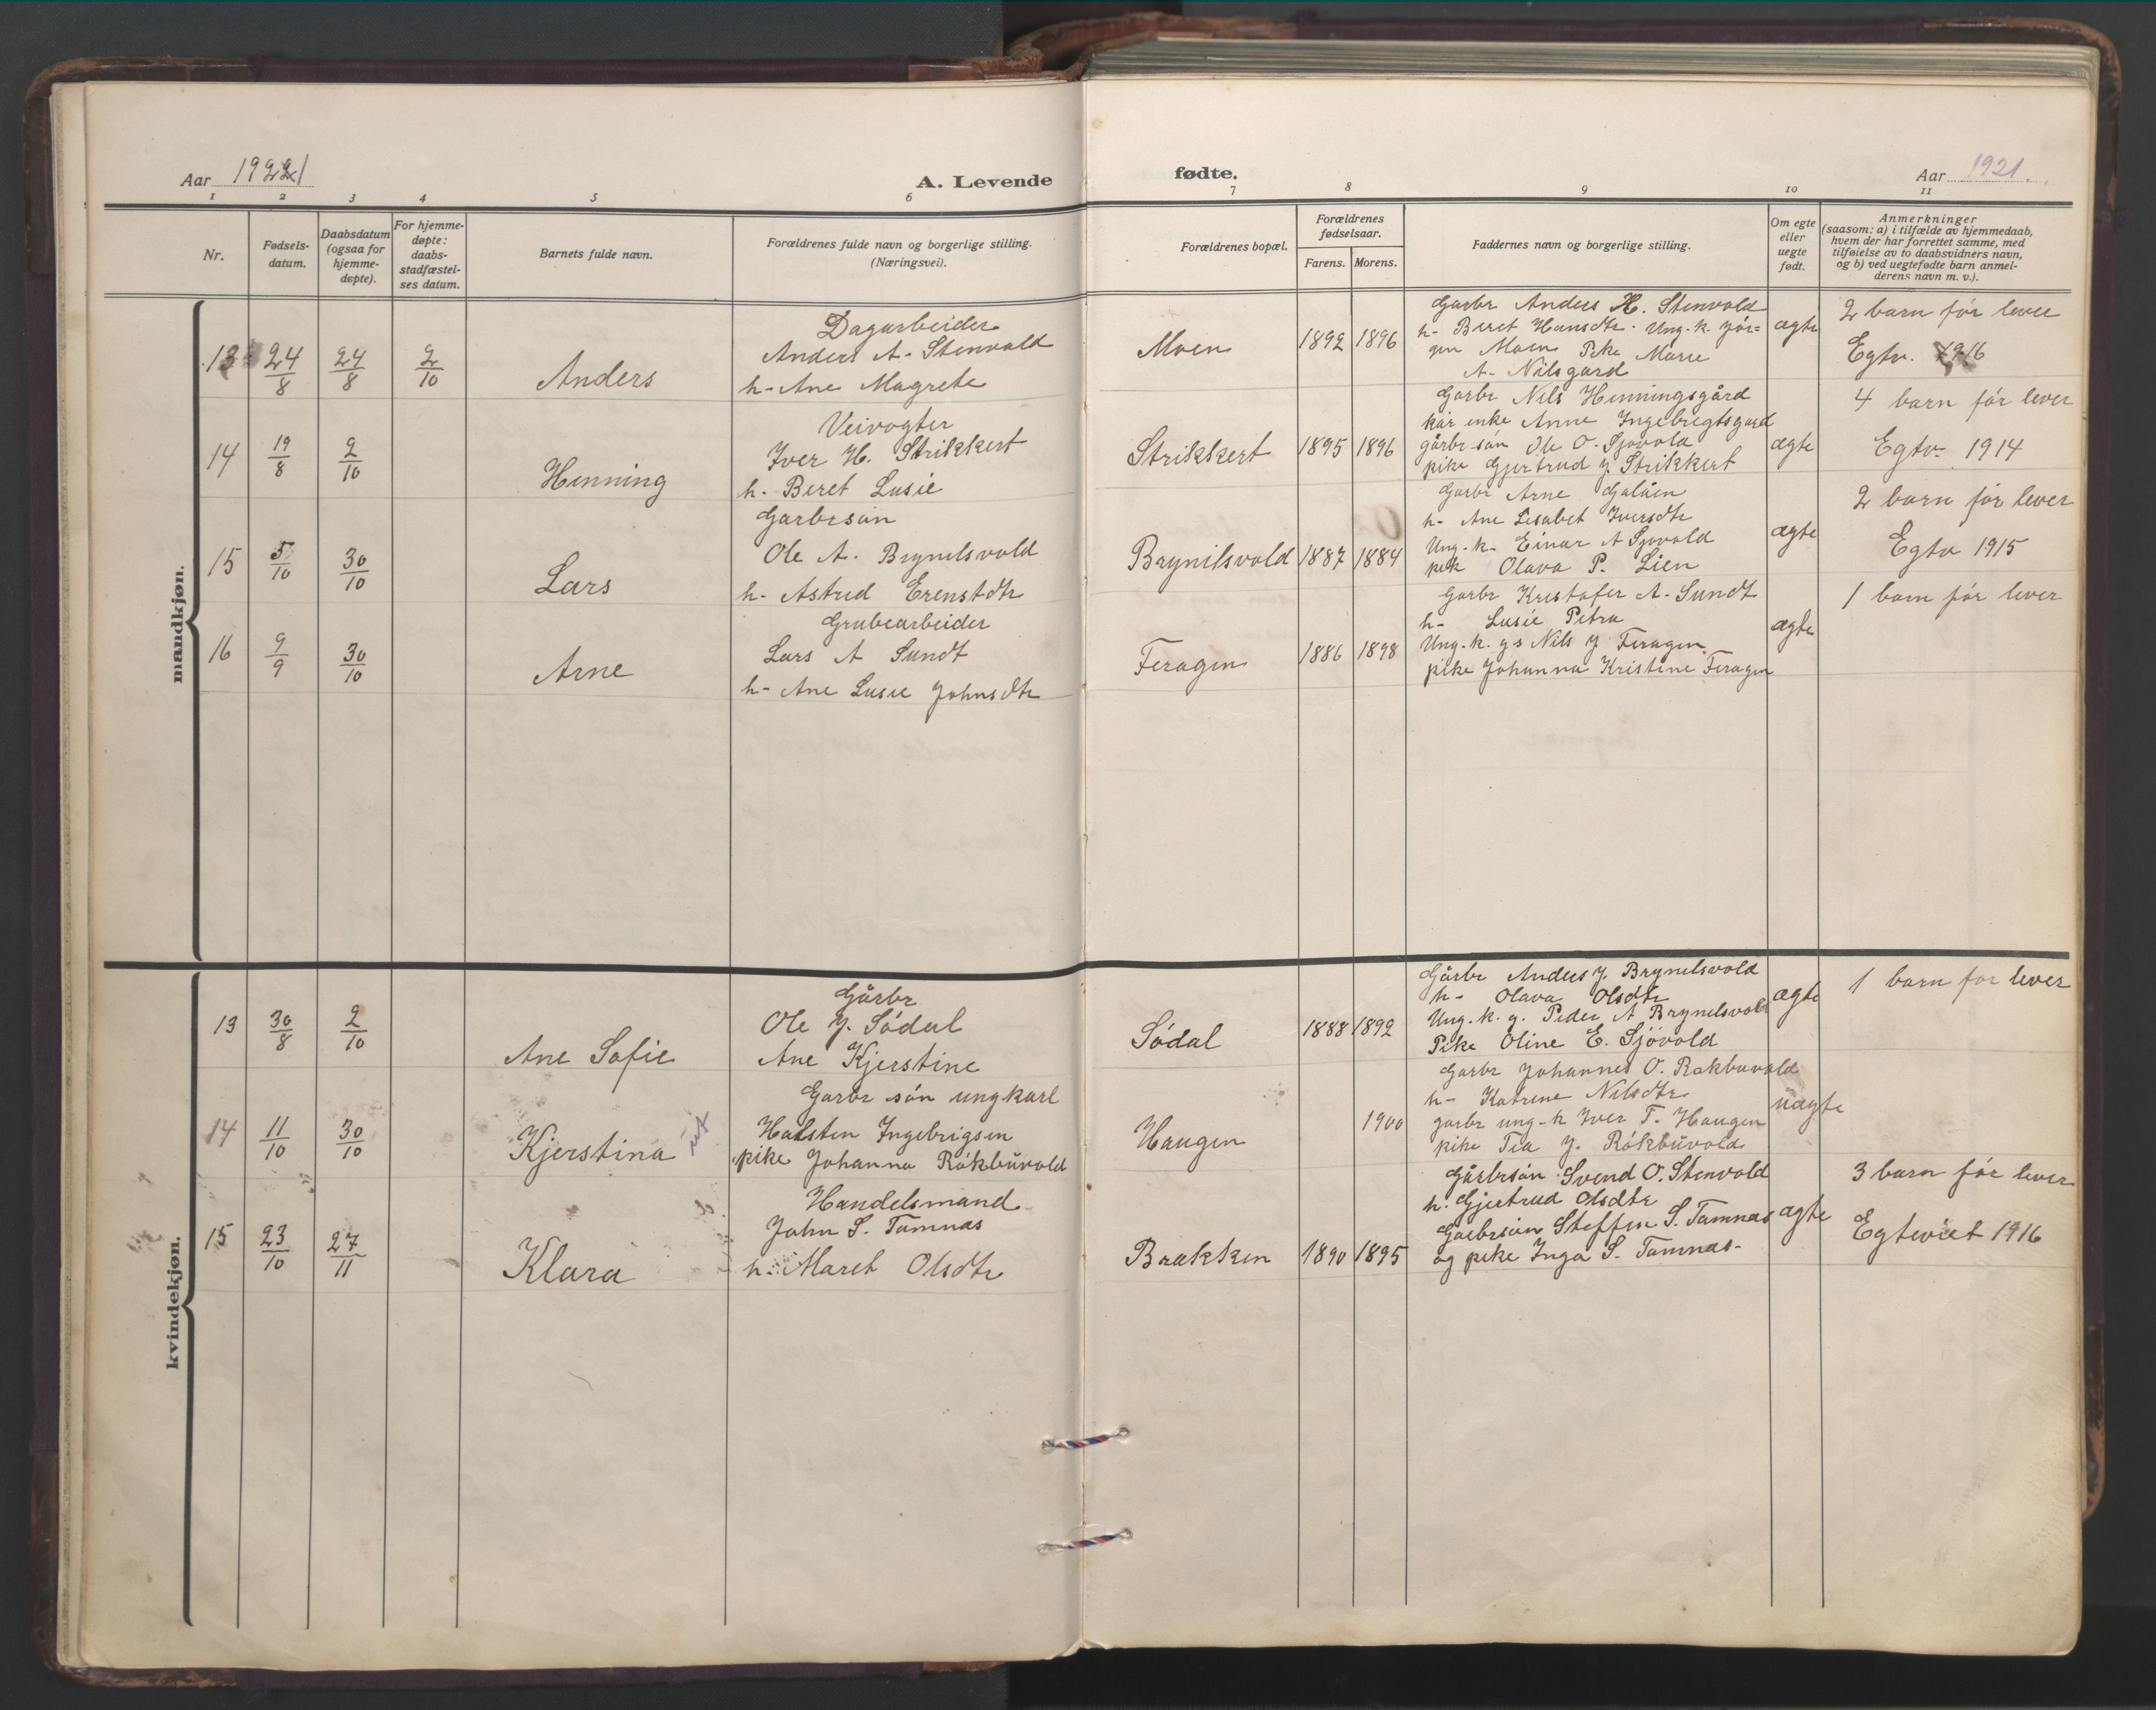 Aar 1921
A. Levende
fødte.
Aar 1921.
1 2 3 4 5 6 7 8 9 10 11
Nr.
Fødsels-
datum.
Daabsdatum
(ogsaa for
hjemme-
døpte).
For hjemme-
døpte:
daabs-
stadfæstel-
ses datum.
Barnets fulde navn.
Forældrenes fulde navn og borgerlige stilling.
(Næringsvei).
Forældrenes bopæl.
Forældrenes
fødselsaar.
Farens. Morens.
Faddernes navn og borgerlige stilling.
Om egte
eller
uegte
født.
Anmerkninger
(saasom: a) i tilfælde av hjemmedaab,
hvem der har forrettet samme, med
tilføielse av to daabsvidners navn,
og b) ved uegtefødte barn anmel-
derens navn m. v.).
mandkjøn.
13 24/8 24/8 2/10
Anders
Dagarbeider
Anders A. Stenvold
h- Ane Magrete
Moen
1892 1896
Garbr Anders H. Stenvold
h- Beret Hansdtr. Ung. k. Jör=
gen Moen Pike Marie
A. Nilsgard
ægte
2 barn før lever
Egtv. 1916
14 19/8 2/10
Henning
Veivogter
Iver H. Strikkert
h. Beret Lusie
Strikkert
1895 1896
Garbr Nils Henningsgård
kår enke Anne Ingebregtsgard
gårbr sön Ole O. Sjovold
pike Gjertrud J Strikkert
ægte
4 barn för lever
Egtv. 1914
15 5/10 30/10
Lars
Garbrsön
Ole A. Brynilsvold
h- Astrid Erenstdtr
Brynilsvold
1887 1884
Garbr Arne Galåen
h- Ane Lisabet Iversdtr
Ung. k. Einar A Sjovold
pik Olava P. Lien
ægte
2 barn för lever
Egtv 1915
16 9/9 30/10
Arne
Grubearbeider
Lars A Sundt
h- Ane Lusie Johnsdtr
Feragen
1886 1898
Garbr Kristofer A. Sundt
h- Lusie Petra
Ung. k. gs Nils J Feragen
pike Johanna Kristine Feragen
ægte
1 barn för lever
kvindekjøn.
13 30/8 2/10
Ane Sofie
Gårbr
Ole J. Södal
Ane Kjerstine
Södal
1888 1892
Gårbr Anders J. Brynilsvold
h- Olava Olsdtr
Ung. k. g. Peder A Brynilsvold
Pike Oline E. Sjövold
ægte
1 barn for lever
14 11/10 30/10
Kjerstina
Garbr sön ungkarl
Halsten Ingebrigsen
pike Johanna Rökbüvold
Haugen
1900
Garbr Johannes O. Rokbuvold
h- Katrine Nilsdtr
garbr ung-k Iver T. Haugen
pike Tea J. Rökbüvold
uægte
15 23/10 27/11
Klara
Handelsmand
John S. Tamnas
h. Maret Olsdtr
Brækken
1890 1895
Gårbrsön Svend O. Stenvold
h. Gjertrud Olsdtr
Garbrsön Steffen S. Tamnas
og pike Inga S. Tamnas-
ægte
3 barn för lever
Egteviet 1916